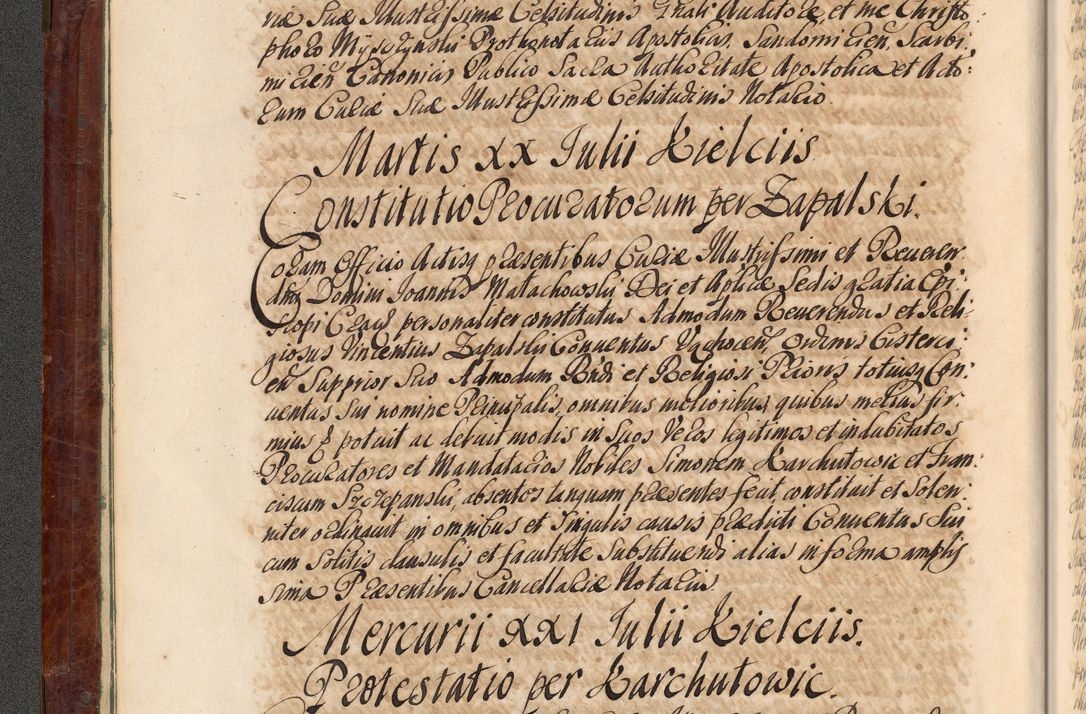 riæ Suæ Illustrissimæ Celsitudinis Grali Auditore, et me Christo:
phoro Myszynski Prothonotarius Apostolius, Sandomirien, Scarbi:
mirien Canonicus Publico Sacra Authoritate Apostolica et Acto:
rum Curiæ Suæ Illustrissimæ Celsitudinis Notario.
Martis XX Iulii Kielciis
Constitutio Procuratorum per Zapalski.
Coram Officio Actisq præsentibus Curiæ Illustrissimi et Reueren:
dmi Domini Joannis Małachowski Dei et Aplicæ Sedis gratia Epi:
scopi Crac, personaliter constitutus Admodum Reuerendus et Reli:
giosus Vincentius Zapalski Conuentus Vąchocen, Ordinis Cisterci:
en Supprior Suo Admodum Rndi et Religiosi Prioris totiusq Con:
uentus Sui nomine Principalis, omnibus melioribus, quibus melius fir:
mius q potuit ac debuit modis in Suos Veros legitimos et indubitatos
Procuratores et Mandatarios Nobiles Simonem Karchutowic et Fran:
ciscum Szczepanski, absentes tanquam præsentes fecit, constituit et Solen:
niter ordinauit in omnibus et singulis causis prædicti Conuentus Sui
cum Solitis clausulis et facultate Substituendi alias in forma amplis
sima Præsentibus Cancellariæ Notariis
Mercurii XXI Iulii Kielciis.
Protestatio per Karchutowic.